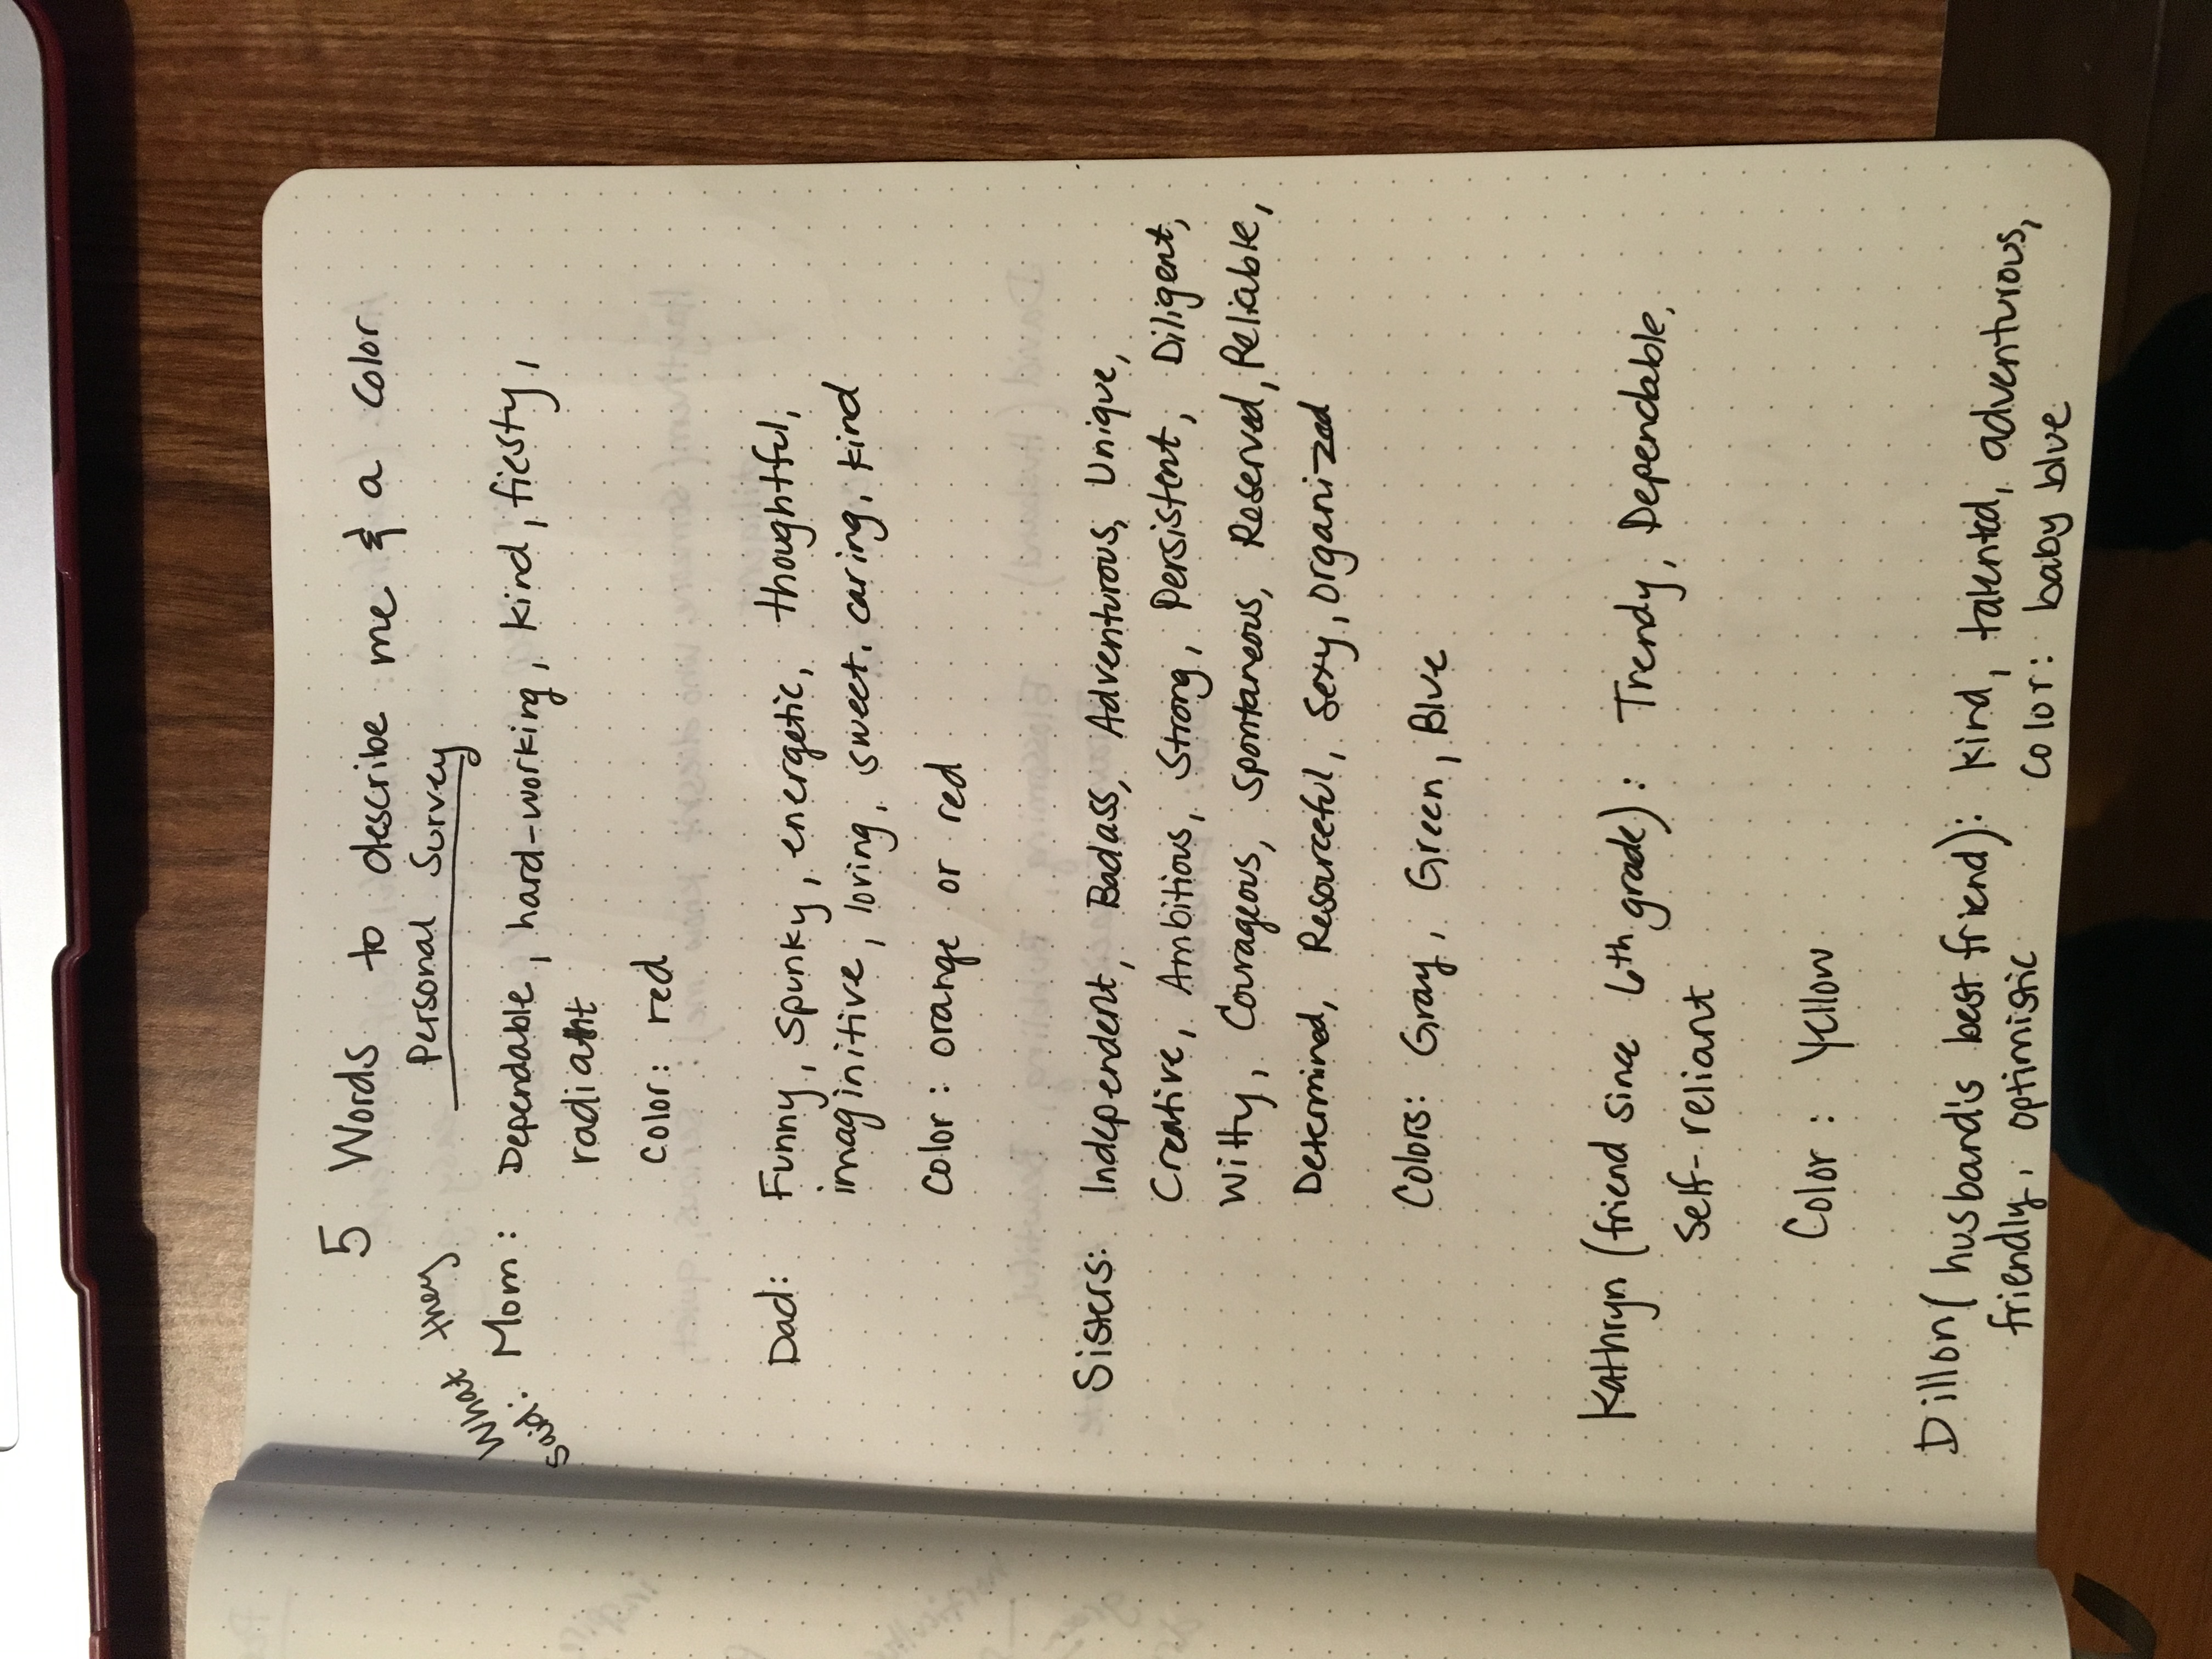 5 Words to describe me & a color
Personal Survey
What they
said:
Mom: Dependable, hard-working, kind, fiesty,
radiant
Color: red
Dad: Funny, spunky, energetic, thoughtful,
imaginitive, loving, sweet, caring, kind
Color: orange or red
Sisters: Independent, Badass, Adventurous, Unique,
Creative, Ambitious, Strong, Persistent, Diligent,
Witty, Courageous, Spontaneous, Reserved, Reliable,
Determined, Resourceful, Sexy, Organized
Colors: Gray, Green, Blue
Kathryn (friend since 6th grade): Trendy, Dependable,
Self-reliant
Color: Yellow
Dillon (husband's best friend): kind, talented, adventurous,
friendly, optimistic
Color: baby blue